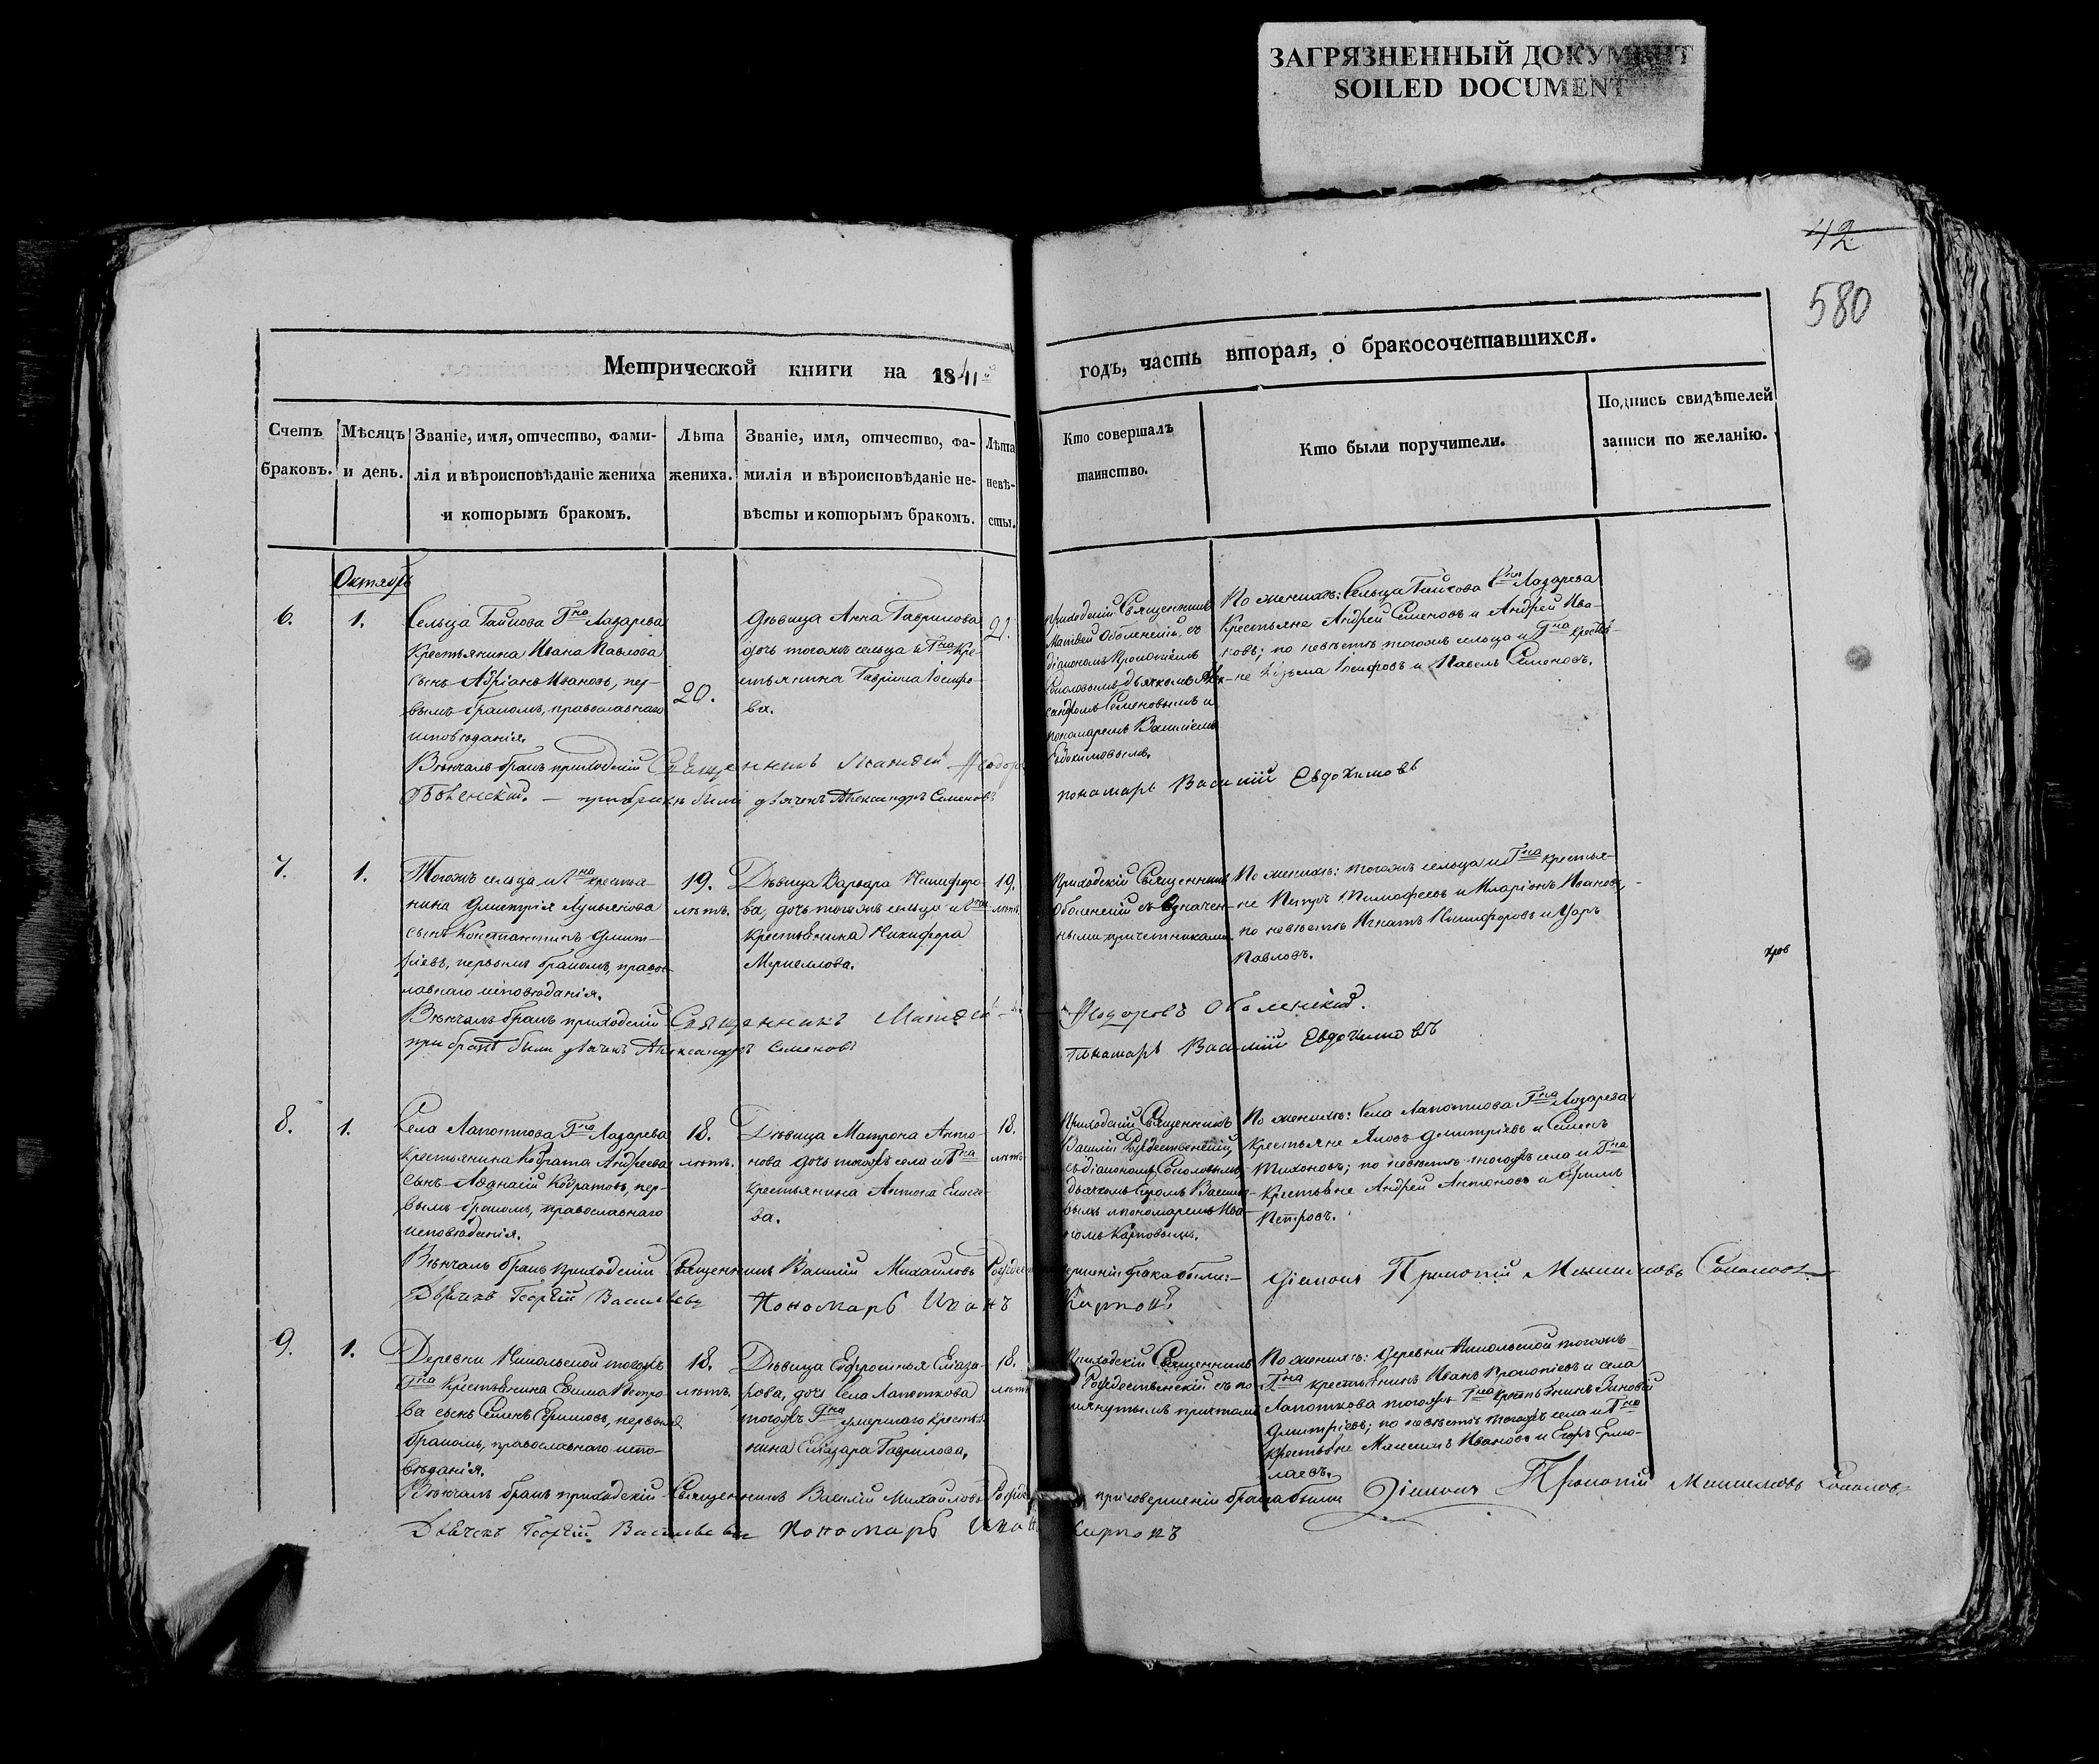 ЗАГРЯЗНЕННЫЙ ДОКУМЕНТ
SOILED DOCUMENT
42
580
Метрической книги на 1841й
годъ, часть вторая, о бракосочетавшихся.
Счетъ
браковъ.
Мѣсяцъ
и день.
Званіе, имя, отчество, фами-
лія и вѣроисповѣданіе жениха
и которымъ бракомъ.
Лѣта
жениха.
Званіе, имя, отчество, фа-
милія и вѣроисповѣданіе не-
вѣсты и которымъ бракомъ.
Лѣта
невѣ-
сты.
Кто совершалъ
таинство.
Кто были поручители.
Подпись свидѣтелей
записи по желанію.
Октябрь
6.
1.
Сельца Гна Лазарева
крестьянина Ивана Павлова
сынъ Адріанъ Ивановъ, пер-
вымъ бракомъ, православнаго
исповѣданія.
20.
Дѣвица Анна Гаврилова
дочь тогожъ сельца и Гна кре-
стьянина Гаврила Іосифо-
ва.
21.
приходскій Священникъ
Матѳей Оболенскій съ
діакономъ Прокопіемъ
Соколовымъ дьячкомъ Алек-
сандромъ Семеновымъ и
пономаремъ Василіемъ
Евдокимовымъ.
По женихѣ: Сельца Гна Лазарева
крестьяне Андрей Семеновъ и Андрей Ива-
новъ; по невѣстѣ тогожъ сельца и Гна крестья-
не Козьма Іосифовъ и Павелъ Семеновъ.
Вѣнчалъ бракъ приходскій Священникъ Матѳей Ѳеодоровъ
Оболенскій. — при бракѣ были дьячекъ Александръ Семеновъ
пономарь Василій Евдокимовъ
7.
1.
Тогожъ сельца и Гна крестья-
нина Дмитрія Лукьянова
сынъ Константинъ Дмит-
ріевъ, первымъ бракомъ, право-
славнаго исповѣданія.
19.
лѣтъ.
Дѣвица Варвара Никифоро-
ва, дочь тогожъ сельца и Гна
крестьянина Никифора
19.
лѣтъ.
Приходскій Священникъ
Оболенскій съ означен-
ными причетниками.
По женихѣ: тогожъ сельца и Гна крестья-
не Петръ Тимофеевъ и Иларіонъ Ивановъ,
по невѣстѣ Игнатъ Никифоровъ и
Павловъ.
Вѣнчалъ бракъ приходскій Священникъ Матѳей
Ѳеодоровъ Оболенскій.
при бракѣ были дьячекъ Александръ Семеновъ
пономарь Василій Евдокимовъ
8.
1.
Села Лапоткова Гна Лазарева
крестьянина Кодрата Андреева
сынъ Аѳанасій Кодратовъ, пер-
вымъ бракомъ, православнаго
исповѣданія.
18.
лѣтъ.
Дѣвица Матрона Анто-
нова дочь тогожъ села и Гна
крестьянина Антона Елисе-
ва.
18.
лѣтъ
Приходскій Священникъ
Василій Рождественскій
съ діакономъ Соколовымъ
дьячкомъ Егоромъ Василье-
вымъ и пономаремъ Ива-
номъ Карповымъ.
По женихѣ: Села Лапоткова Гна Лазарева
крестьяне Яковъ Дмитріевъ и Семенъ
Тихоновъ; по невѣстѣ тогожъ села и Гна
крестьяне Андрей Антоновъ и Ефимъ
Петровъ.
Вѣнчалъ бракъ приходскій Священникъ Василій Михайловъ
были:— Діаконъ Прокопій Соколовъ
Дьячекъ Георгій Васильевъ Пономарь Иванъ Карповъ
9.
1.
Деревни Никольской тогожъ
Гна крестьянина Ефима Петро-
ва сынъ Семенъ Ефимовъ, первымъ
бракомъ, православнаго испо-
вѣданія.
18.
лѣтъ.
Дѣвица Евфросинія Елеаза-
рова, дочь села Лапоткова
тогожъ Гна умершаго крестья-
нина Елеазара Гаврилова.
18.
лѣтъ
Приходскій Священникъ
Рождественскій съ по-
мянутымъ причтомъ
По женихѣ: Деревни Никольской тогожъ
Гна крестьянинъ Иванъ Прокопіевъ и села
Лапоткова тогожъ Гна крестьянинъ Зиновій
Дмитріевъ; по невѣстѣ тогожъ села и Гна
крестьяне Максимъ Ивановъ и Егоръ Ермо-
лаевъ.
Вѣнчалъ бракъ приходскій Священникъ Василій Михайловъ
при совершеніи брака были Діаконъ Прокопій Соколовъ
Дьячекъ Георгій Васильевъ Пономарь Иванъ Карповъ